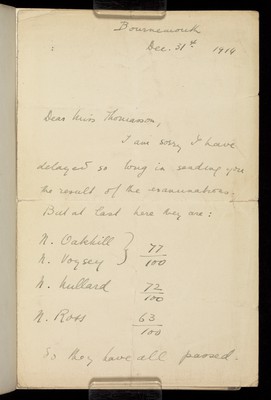 Bournemouth
Dec. 31st 1914
Dear Miss Thomasson,
I am sorry I have
delayed so long in sending you
the result of the examinations.
But at last here they are:
N. Oakhill } 77/100
N. Voysey
N. Mullard 72/100
N. Ross 63/100
So they have all passed.